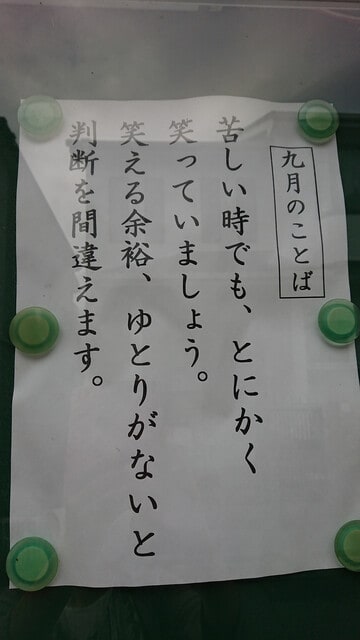 九月のことば
苦しい時でも、とにかく
笑っていましょう。
笑える余裕、ゆとりがないと
判断を間違えます。